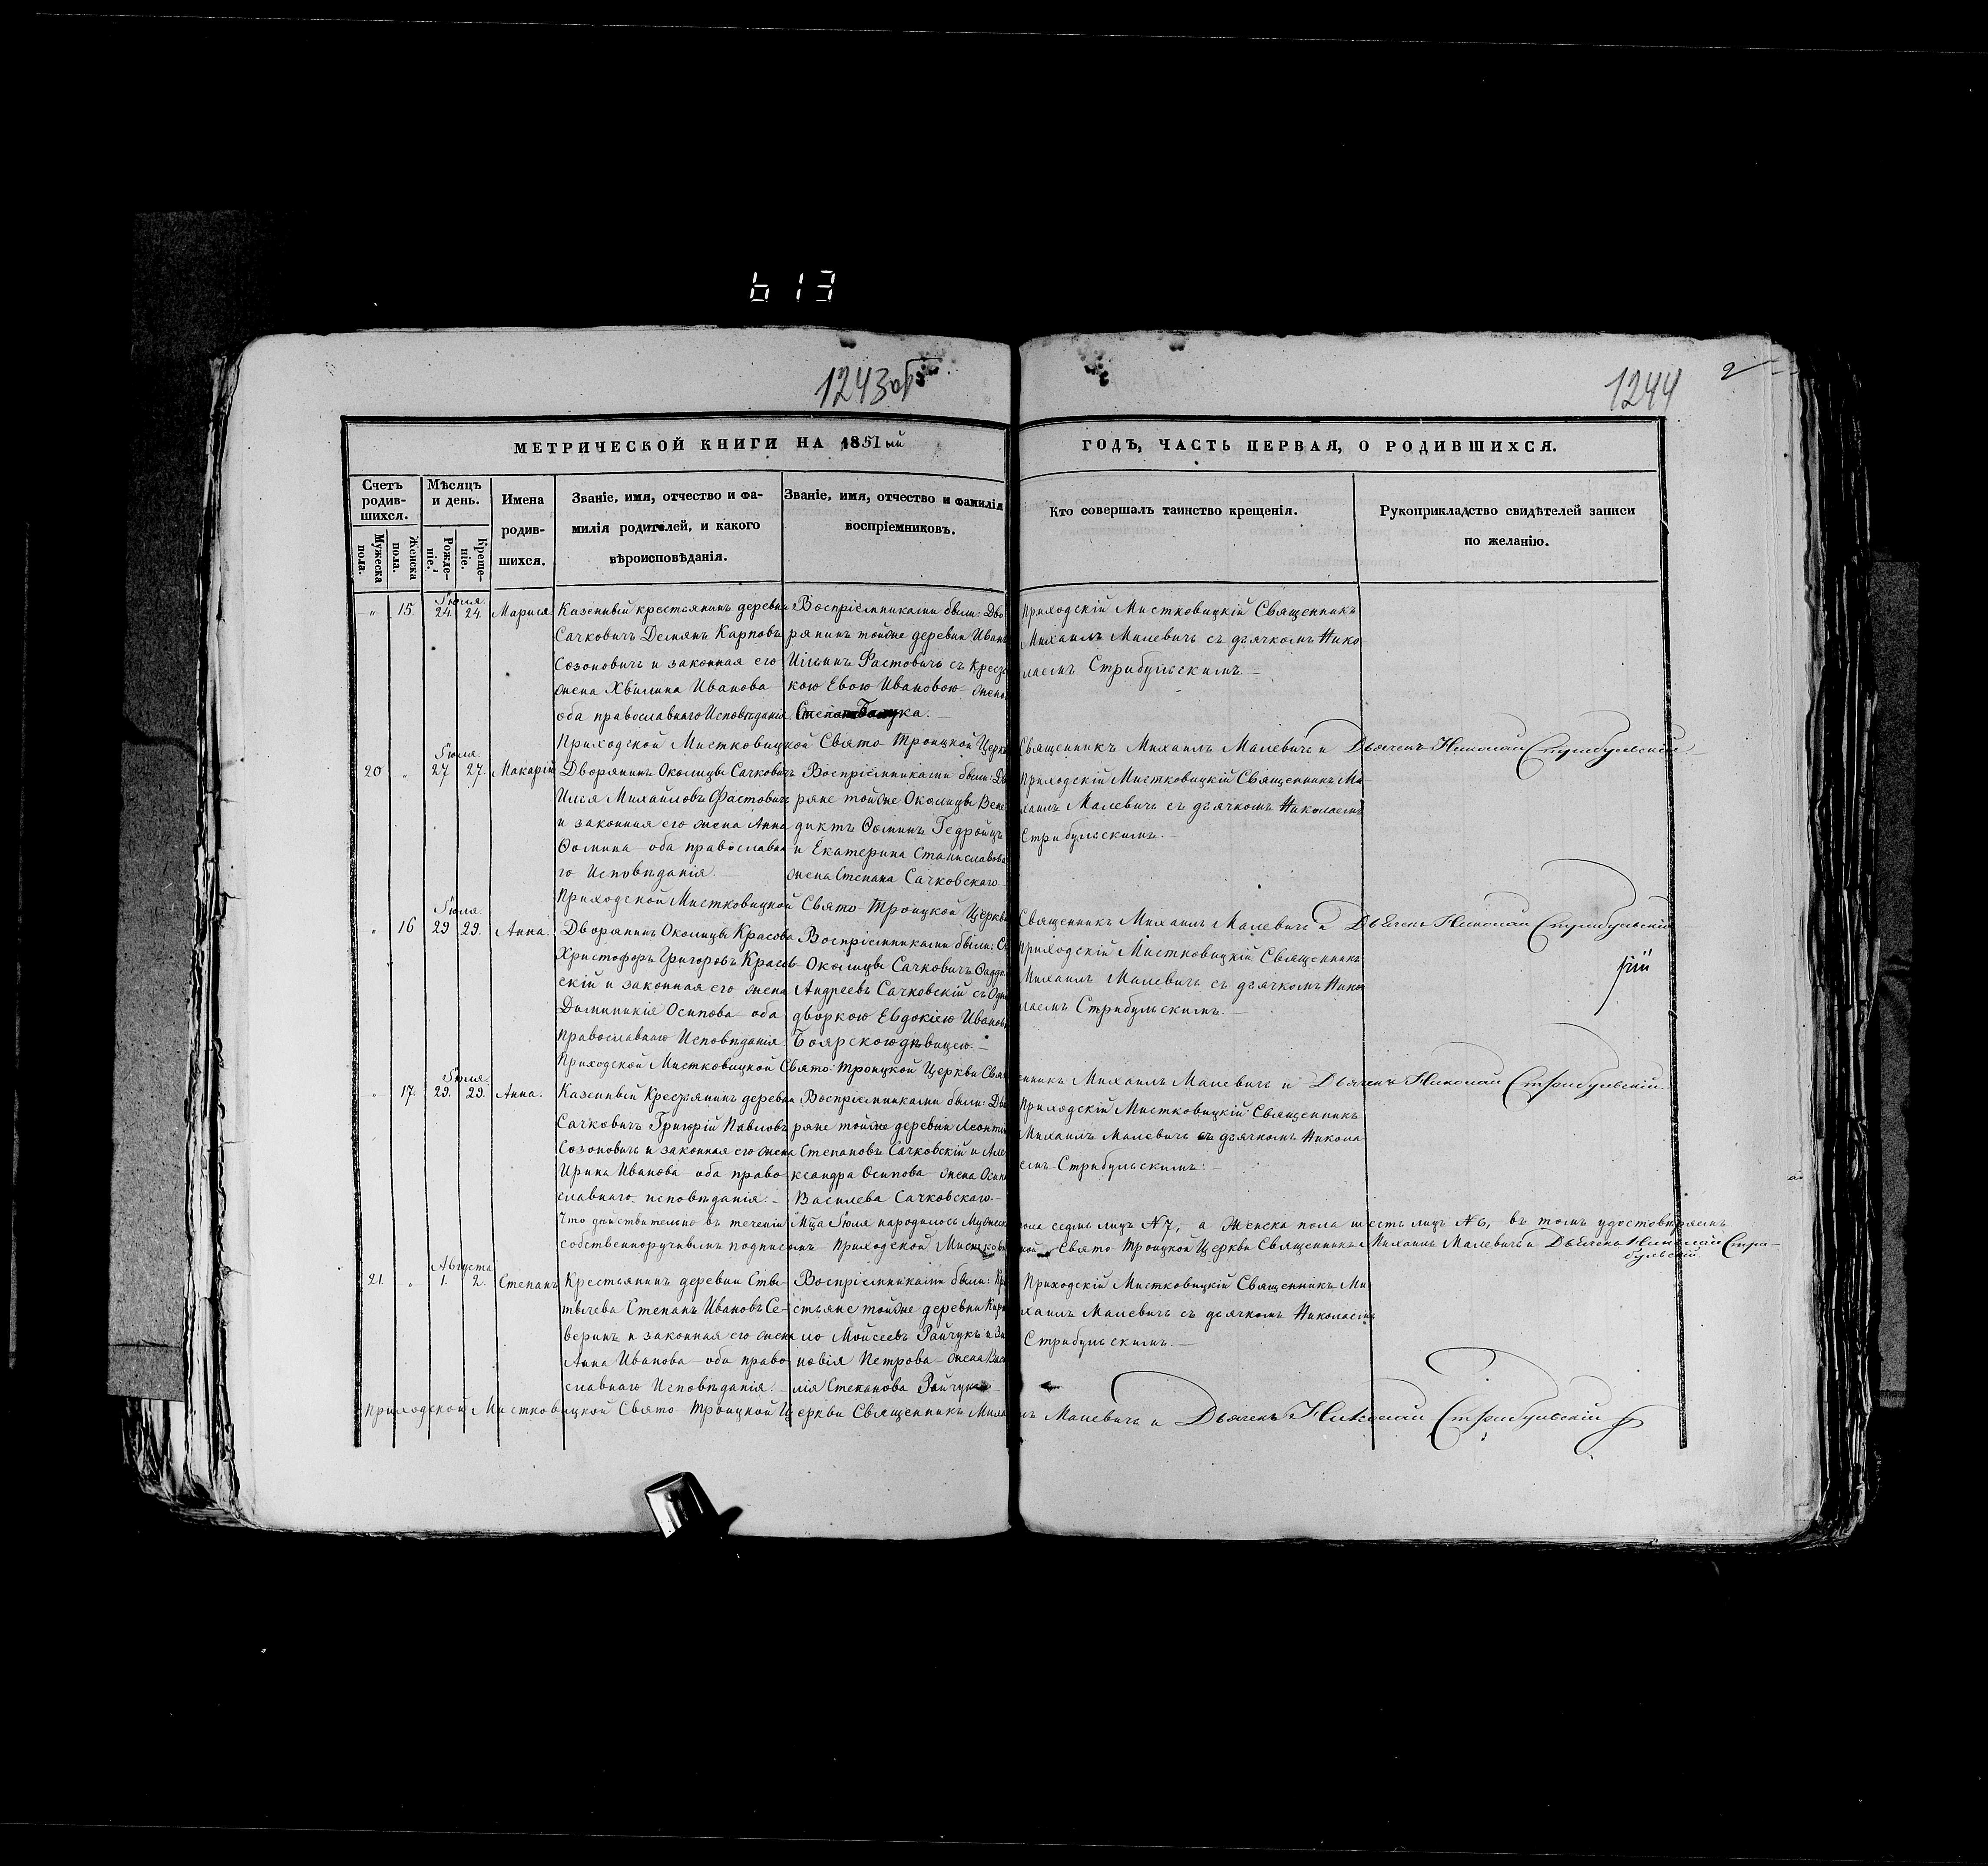 613
1243об
1244
2
МЕТРИЧЕСКОЙ КНИГИ НА 1851ый
ГОДЪ, ЧАСТЬ ПЕРВАЯ, О РОДИВШИХСЯ.
Счетъ родив-шихся.
Мужеска пола.
Женска пола.
Мѣсяцъ и день.
Рожде-ніе.
Креще-ніе.
Имена родив-шихся.
Званіе, имя, отчество и фа-
милія родителей, и какого
вѣроисповѣданія.
Званіе, имя, отчество и фамилія
воспріемниковъ.
Кто совершалъ таинство крещенія.
Рукоприкладство свидѣтелей записи
по желанію.
Іюля.
„ 15. 24. 24. Марися
Казенный крестьянинъ деревни
Сачковичъ Демянъ Карповъ
Созоновичъ и законная его
жена Хвилина Иванова
оба православнаго Исповѣданія.
Воспріемниками были: Дво
рянинъ тойже деревни Иванъ
Ильинъ Фастовичъ съ Крестья
кою Евою Ивановою жено
Приходскій Мистковицкій Священникъ
Михаилъ Малевичъ съ дьячкомъ Нико
лаемъ Стрибульскимъ.
Приходской Мистковицкой Свято Троицкой Церкви Священникъ Михаилъ Малевичъ и Дьячекъ Николай Стрибульскій
Іюля.
20 „ 27 27. Макарій
Дворянинъ Околицы Сачковичъ
Илья Михайловъ Фастовичъ
и законная его жена Анна
Ѳомина оба православна
го Исповѣданія.
Воспріемниками были: Дво
ряне тойже Околицы Вене
диктъ Ѳоминъ Гедройцъ
и Екатерина Станиславова
жена Степана Сачковскаго.
Приходскій Мистковицкій Священникъ Ми
хаилъ Малевичъ съ дьячкомъ Николаемъ
Стрибульскимъ.
Приходской Мистковицкой Свято Троицкой Церкви Священникъ Михаилъ Малевичъ и Дьячекъ Николай Стрибульскій
Іюля.
„ 16 29 29. Анна.
Дворянинъ Околицы Красова
Христофоръ Григоровъ Красов
скій и законная его жена
Доминикія Осипова оба
Православнаго Исповѣданія
Воспріемниками были:
Околицы Сачковичъ Ѳаддей
Андреевъ Сачковскій съ Одно
дворкою Евдокіею Иванов
Боярскою дѣвицею.
Приходскій Мистковицкій Священникъ
Михаилъ Малевичъ съ дьячкомъ Нико
лаемъ Стрибульскимъ.
Приходской Мистковицкой Свято Троицкой Церкви Священникъ Михаилъ Малевичъ и Дьячекъ Николай Стрибульскій
Іюля.
„ 17. 29. 29. Анна.
Казенный Крестьянинъ деревни
Сачковичъ Григорій Павловъ
Созоновичъ и законная его жена
Ирина Иванова оба право
славнаго исповѣданія.
Воспріемниками были: Дво
ряне тойже деревни Леонтій
Степановъ Сачковскій и Але
ксандра Осипова жена Осипа
Василева Сачковскаго.
Приходскій Мистковицкій Священникъ
Михаилъ Малевичъ съ дьячкомъ Никола
емъ Стрибульскимъ.
Что дѣйствительно въ теченіи Мца Іюля народилось Мужеска пола седмь лицъ N 7, а Женска пола шесть лицъ N 6, въ томъ удостовѣряемъ
собственноручнымъ подписомъ Приходской Мистковицкой Свято Троицкой Церкви Священникъ Михаилъ Малевичъ и Дьячекъ Николай Стри-
бульскій.
Августа
21. „ 1. 2. Степанъ
Крестьянинъ деревни Ства-
тычева Степанъ Ивановъ Се-
веринъ и законная его жена
Анна Иванова оба право
славнаго Исповѣданія.
Воспріемниками были: Кре
стьяне тойже деревни Кири
ло Мойсеевъ Райчукъ и Зи
новія Петрова жена Васи
лія Степанова Райчука
Приходскій Мистковицкій Священникъ Ми
хаилъ Малевичъ съ дьячкомъ Николаемъ
Стрибульскимъ.
Приходской Мистковицкой Свято Троицкой Церкви Священникъ Михаилъ Малевичъ и Дьячекъ Николай Стрибульскій